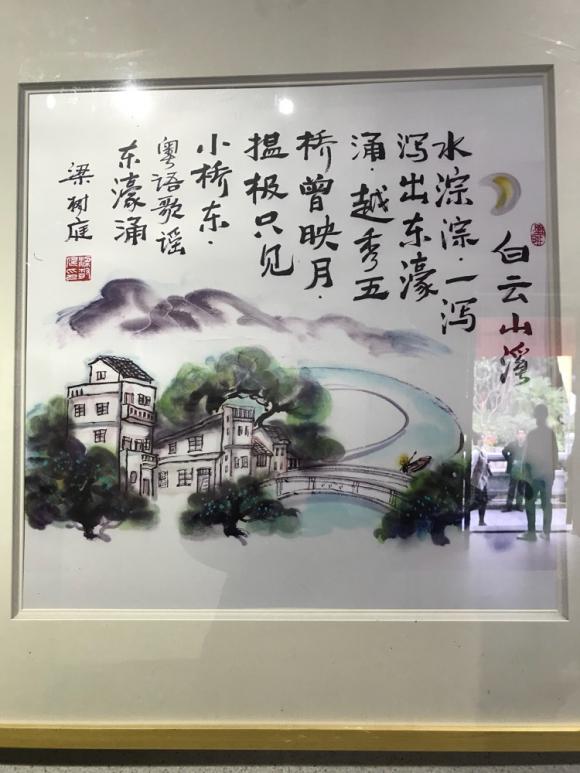 白云山溪
水淙淙·一泻
泻出东濠
涌·越秀五
桥曾映月·
揾极只见
小桥东·
粤语歌谣
东濠涌
梁树庭